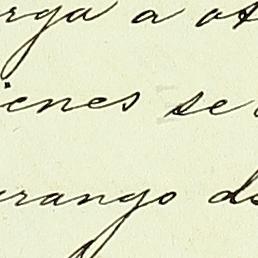 rga a ot
ienes se
urango de